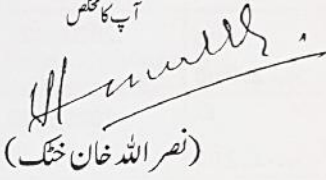 آپ کا مخلص
(نصر اللہ خان خٹک)